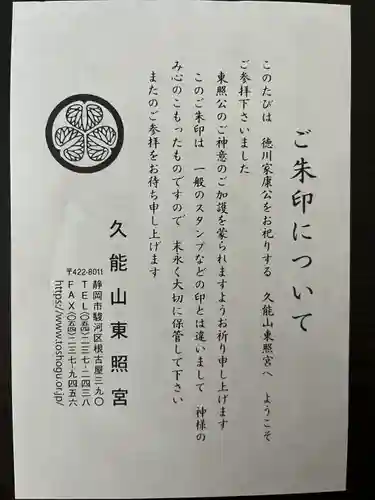 ご朱印について
このたびは　徳川家康公をお祀りする　久能山東照宮へ　ようこそ
ご参拝下さいました
東照公のご神意のご加護を蒙られますようお祈り申し上げます
このご朱印は　一般のスタンプなどの印とは違いまして　神様の
み心のこもったものですので　末永く大切に保管して下さい
またのご参拝をお待ち申し上げます
久能山東照宮
〒422-8011
静岡市駿河区根古屋三九〇
ＴＥＬ(〇五四)二三七-二四三八
ＦＡＸ(〇五四)二三七-九四五六
https://www.toshogu.or.jp/